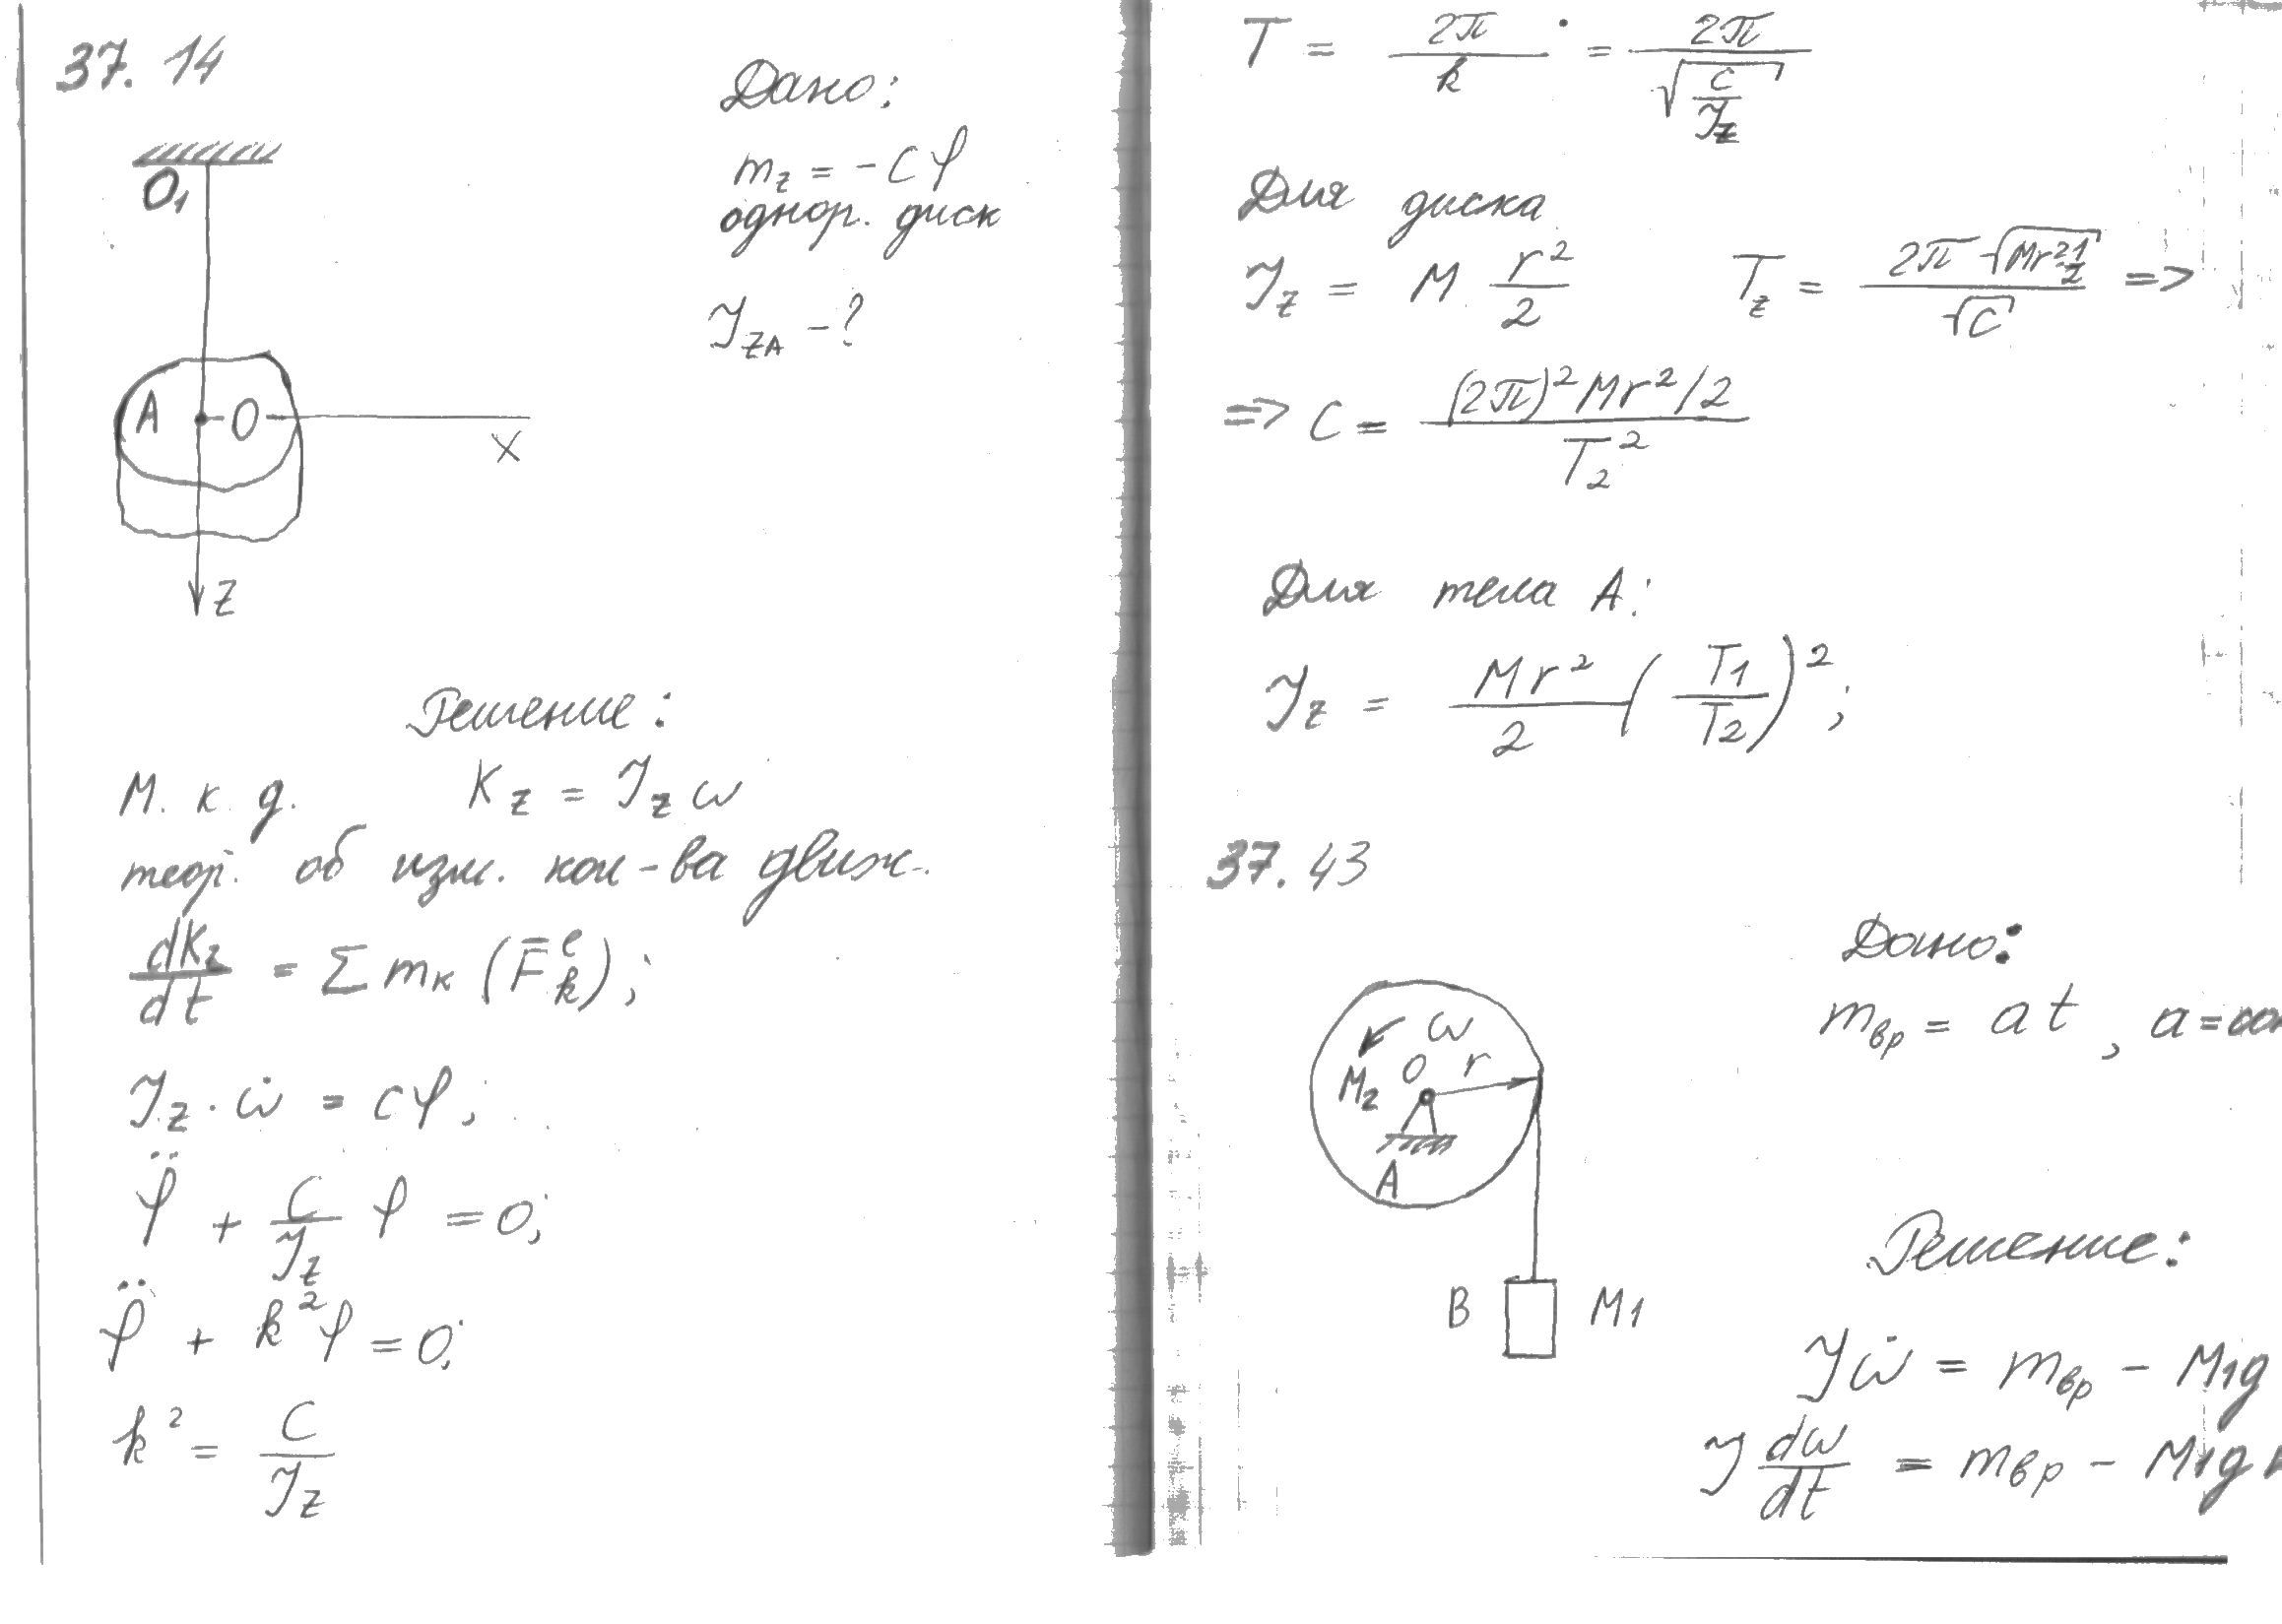 37. 14
Дано:
m_z = - Cφ
однор. диск
J_zA - ?
O₁
A
O
x
z
Решение:
М. к. д. K_z = J_z ω
теор. об изм. кол-ва движ.
dK_z/dt = Σ m_к (F̄_k^e);
J_z · ω̇ = cφ;
φ̈ + C/J_z φ = 0;
φ̈ + k²φ = 0;
k² = C/J_z
T = 2π/k = 2π/√(C/J_z)
Для диска
J_z = M r²/2 T_z = 2π√(Mr² 1/2)/√C =>
=> C = (2π)² Mr²/2 / T₂²
Для тела A:
J_z = Mr²/2 (T1/T2)²;
37. 43
Дано:
m_вр = at, a = con
ω
O
r
M₂
A
B
M1
Решение:
Jω̇ = m_вр - M1g
J dω/dt = m_вр - M1g